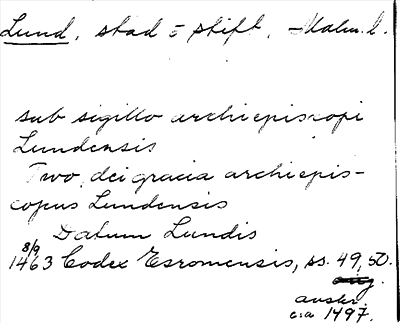 Lund, stad o stift. Malm. l.
sub sigillo archiepiscopi
Lundensis
Two, dei gracia archiepis-
copus Lundensis
Datum Lundis
8/9
1463 Codex Esromensis, ss. 49, 50.
avskr.
c:a 1497.